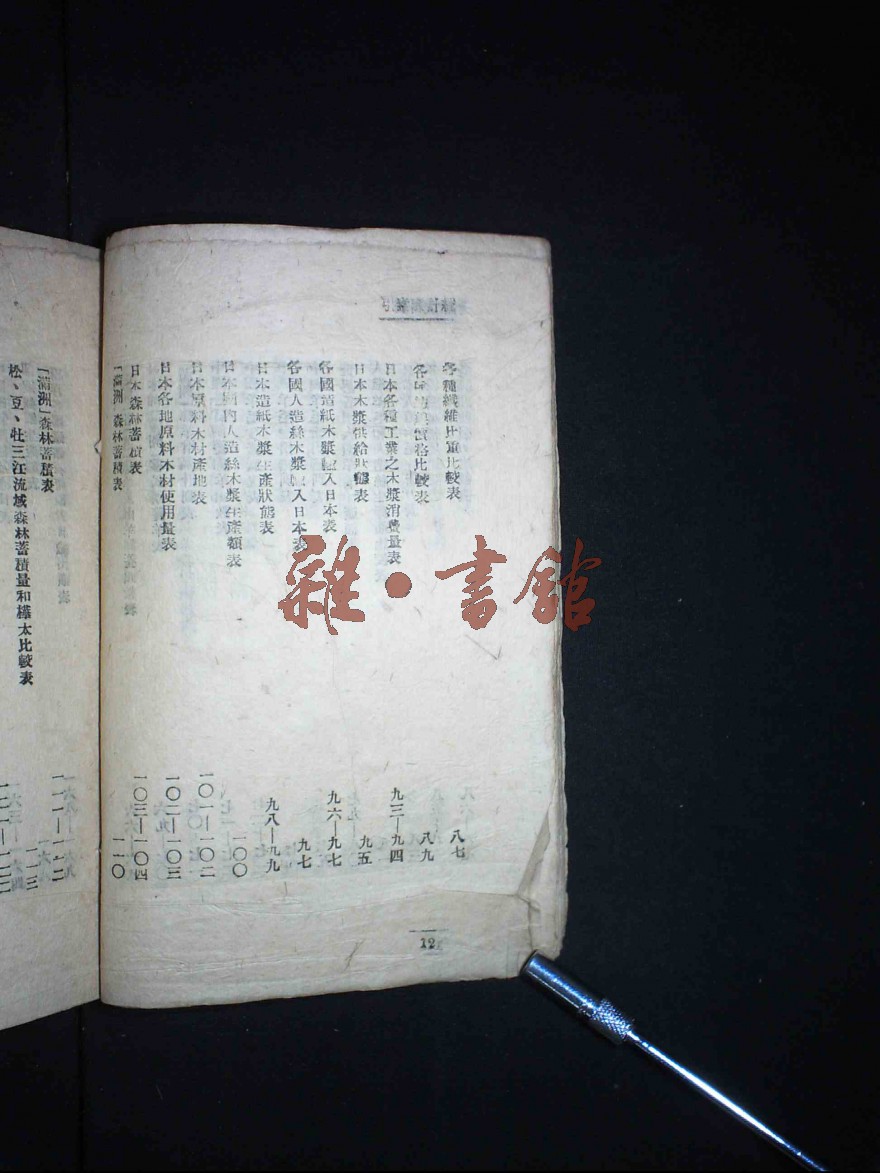 各種纖維比重比較表 八七
各 價格比較表 八九
日本各種工業之木漿消費量表 九三—九四
日本木漿供給狀態表 九五
各國造紙木漿輸入日本表 九六—九七
各國人造絲木漿輸入日本表 九七
日本造紙木漿生產狀態表 九八—九九
日本國內人造絲木漿生產額表 一〇〇
日本原料木材產地表 一〇一—一〇二
日本各地原料木材使用量表 一〇二—一〇三
日本森林蓄積表 一〇三—一〇四
「滿洲」森林蓄積表 一一〇
12
「滿洲」森林蓄積表 一一一—一一二
松、豆、牡三江流域森林蓄積量和樺太比較表 一一三
雜·書館